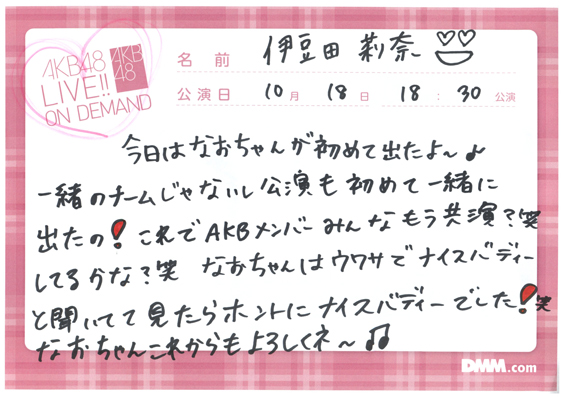 AKB48
LIVE!!
ON DEMAND
AKB
48
名前 伊豆田 莉奈
公演日 10月 18日 18:30公演
今日はなおちゃんが初めて出たよ〜♪
一緒のチームじゃないし公演も初めて一緒に
出たの! これでAKBメンバーみんなもう共演?笑
してるかな?笑 なおちゃんはウワサでナイスバディー
と聞いてて見たらホントにナイスバディーでした!笑
なおちゃんこれからもよろしくネ〜♫
DMM.com